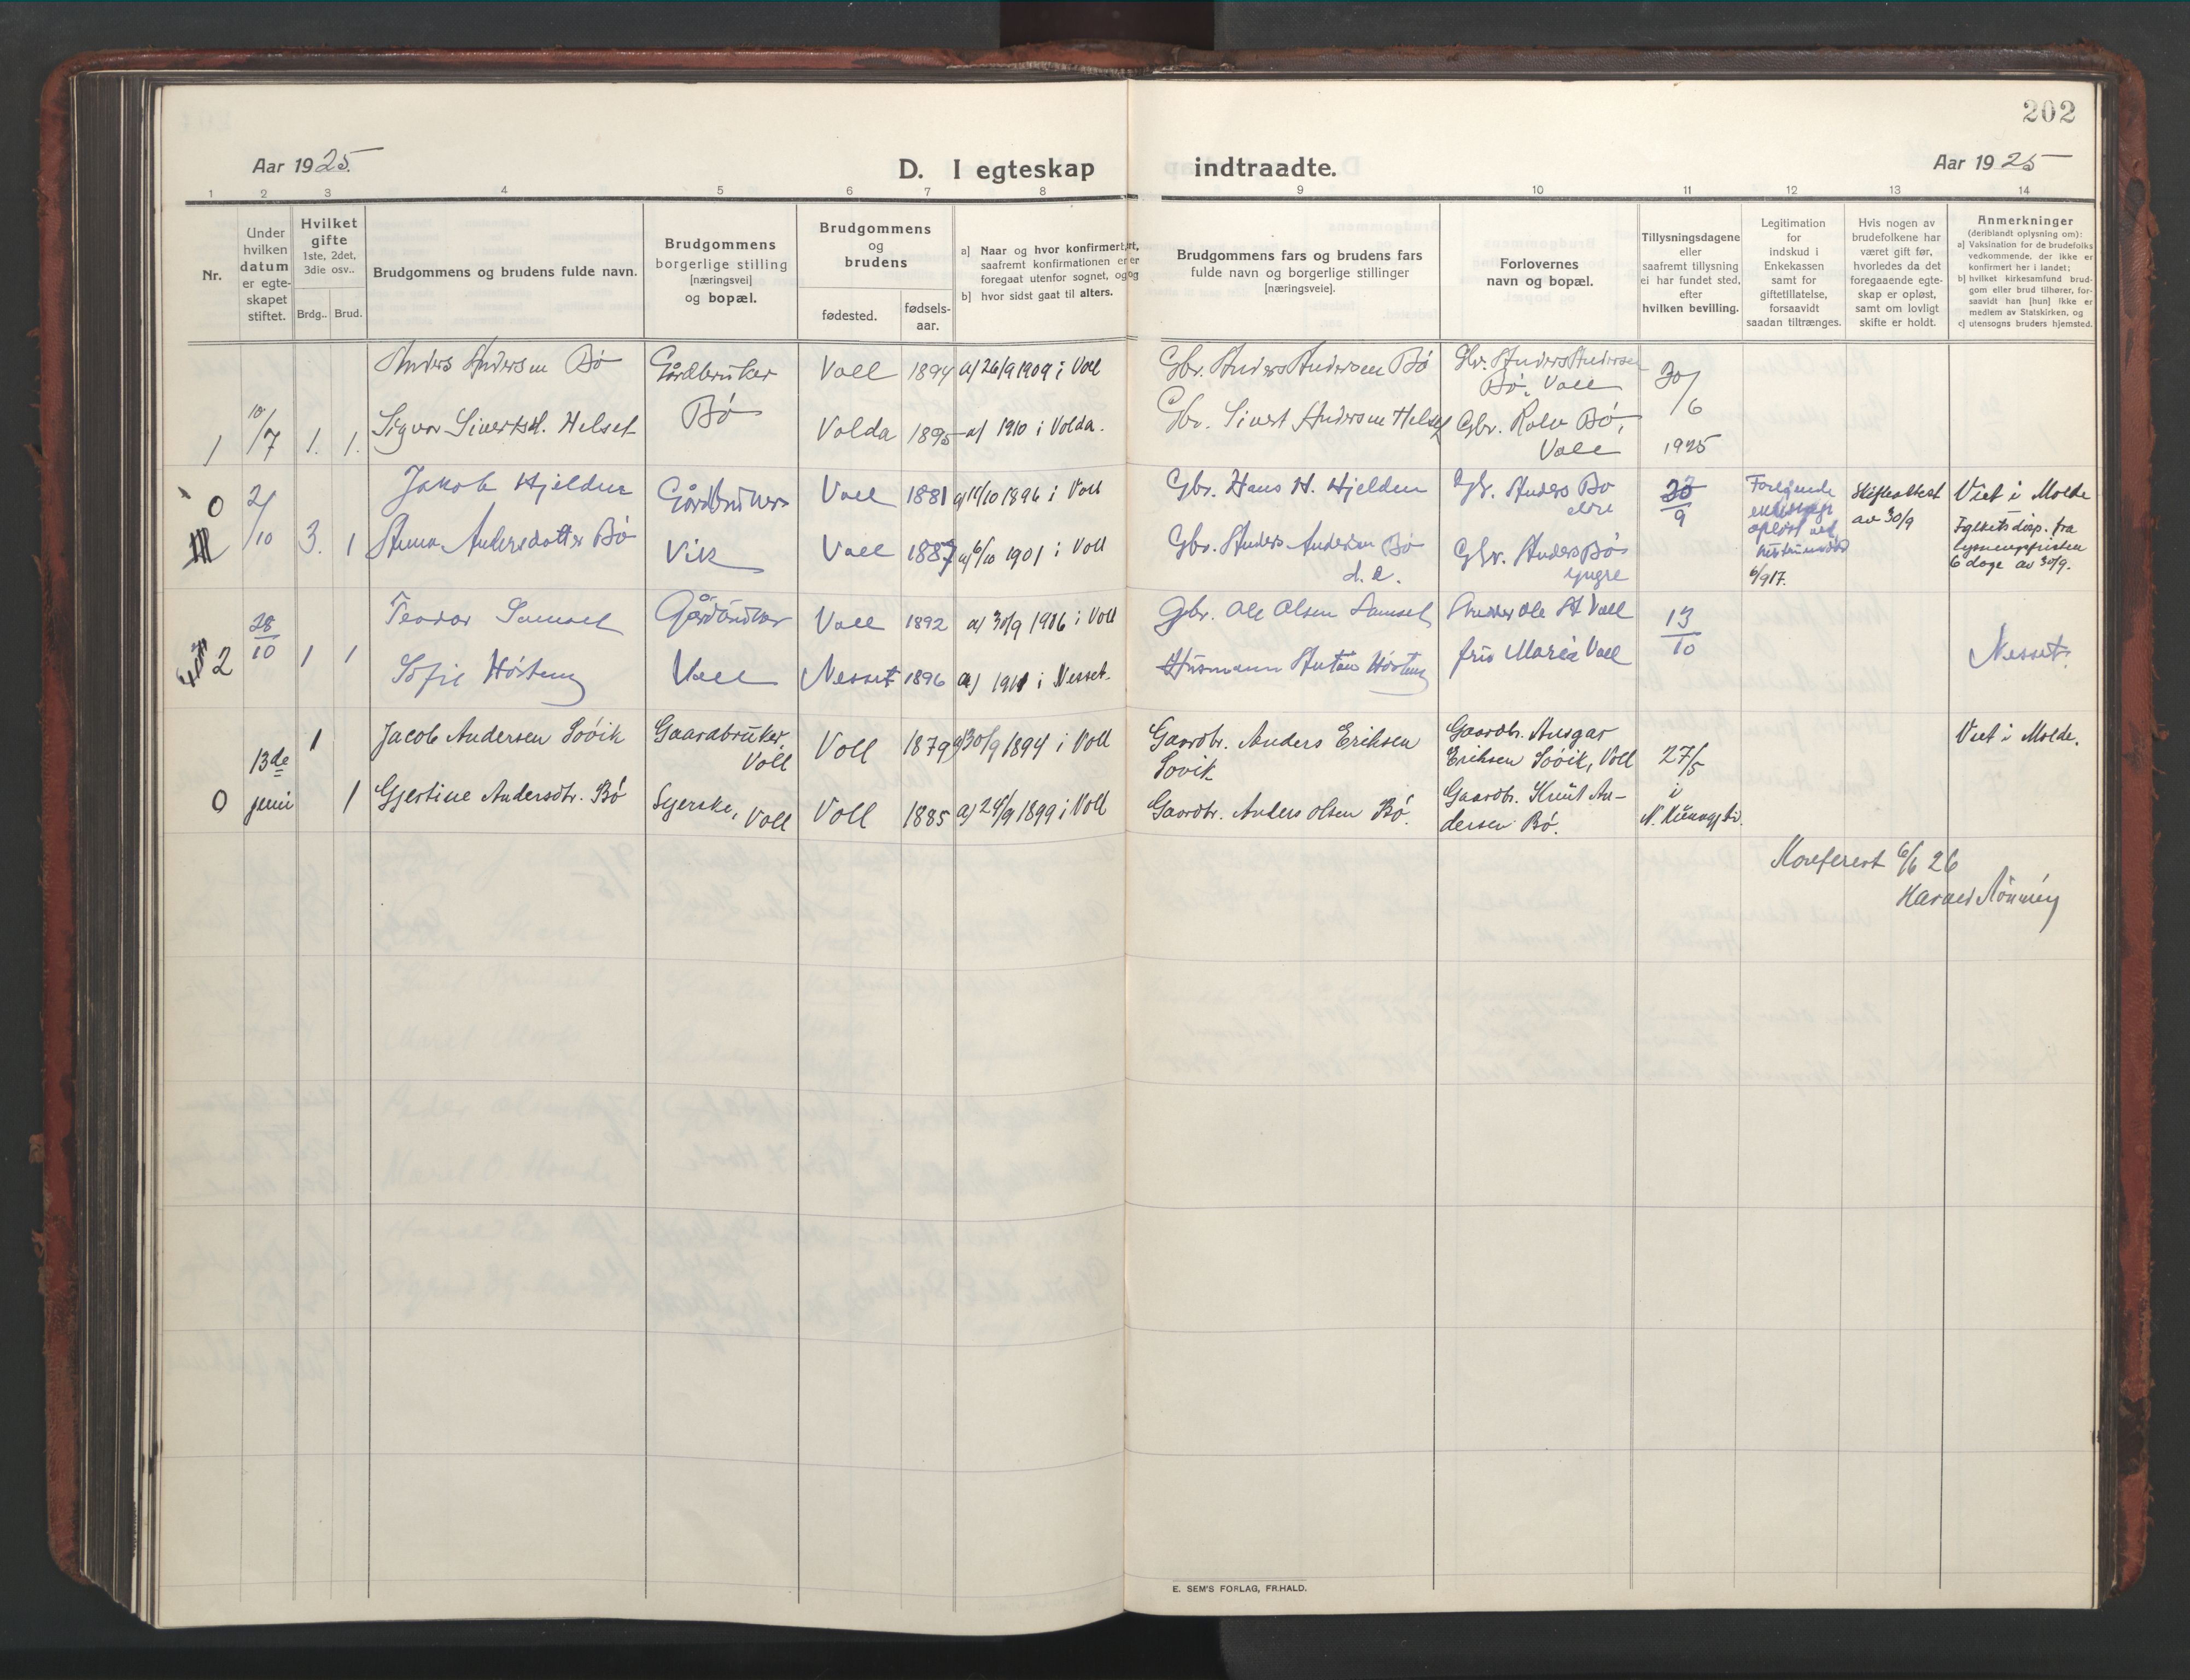 202
Aar 1925.
D. I egteskap indtraadte.
Aar 1925
1 2 3 4 5 6 7 8 9 10 11 12 13 14
Nr.
Under
hvilken
datum
er egte-
skapet
stiftet.
Hvilket
gifte
1ste, 2det,
3die osv..
Brdg.. Brud.
Brudgommens og brudens fulde navn.
Brudgommens
borgerlige stilling
[næringsvei]
og bopæl.
Brudgommens
og
brudens
fødested.
fødsels-
aar.
a) Naar og hvor konfirmert,
saafremt konfirmationen er
foregaat utenfor sognet, og
b) hvor sidst gaat til alters.
Brudgommens fars og brudens fars
fulde navn og borgerlige stillinger
[næringsveie].
Forlovernes
navn og bopæl.
Tillysningsdagene
eller
saafremt tillysning
ei har fundet sted,
efter
hvilken bevilling.
Legitimation
for
indskud i
Enkekassen
samt for
giftetillatelse,
forsaavidt
saadan tiltrænges.
Hvis nogen av
brudefolkene har
været gift før,
hvorledes da det
foregaaende egte-
skap er opløst,
samt om lovligt
skifte er holdt.
Anmerkninger
(deriblandt oplysning om):
a) Vaksination for de brudefolks
vedkommende, der ikke er
konfirmert her i landet;
b) hvilket kirkesamfund brud-
gom eller brud tilhører, for-
saavidt han [hun] ikke er
medlem av Statskirken, og
c) utensogns bruders hjemsted.
1
10/7
1. 1.
Anders Andersen Bø
Sigvor Sivertsd. Helset
Gårdbruker
Bø
Voll 1894 a) 26/9 1909 i Voll
Volda 1895 a) 1910 i Volda.
Gbr. Anders Andersen Bø
Gbr. Sivert Andersen Helset
Gbr. Anders Andersen
Bø, Voll
Gbr. Rolv Bø,
Voll
30/6
1925
0
2/10
3. 1
Jakob Hjelden
Anna Andersdatter Bø
Gårdbruker
Vik
Voll 1881 a) 1896 i Voll
Voll 1887 a) 6/10 1901 i Voll
Gbr. Hans H. Hjelden
Gbr. Anders Andersen Bø
d. e.
Gbr. Anders Bø
eldre
Gbr. Anders Bø
yngre
20/9
Foregående
ekteskap
opløst ved
hustruens død
6/9 17.
Skifteattest
av 30/9
Viet i Molde
Fylkets disp. fra
lysningsfristen
6 dage av 30/9.
2
28/10
1 1
Teodor Samset
Sofie Høsteng
Gårdbruker
Voll
Voll 1892 a) 30/9 1906 i Voll
Nesset 1896 a) 1911 i Nesset.
Gbr. Ole Olsen Samset
Husmann Anton Høsteng
Ole A. Voll
fru Maria Voll
13/10
Nesset.
0
13de
juni
1
1
Jacob Andersen Søvik
Gjertine Andersdtr. Bø
Gaardbruker,
Voll
Syerske, Voll
Voll 1879 a) 30/9 1894 i Voll
Voll 1885 a) 24/9 1899 i Voll
Gaardbr. Anders Eriksen
Sovik
Gaardbr. Anders Olsen Bø.
Gaardbr. Ansgar
Eriksen Søvik, Voll
Gaardbr. Knut An-
dersen Bø.
27/5
i
N. Kunngj. td.
Viet i Molde.
Konferert 6/6 26
Harald Rønning
E. SEM'S FORLAG, FR.HALD.